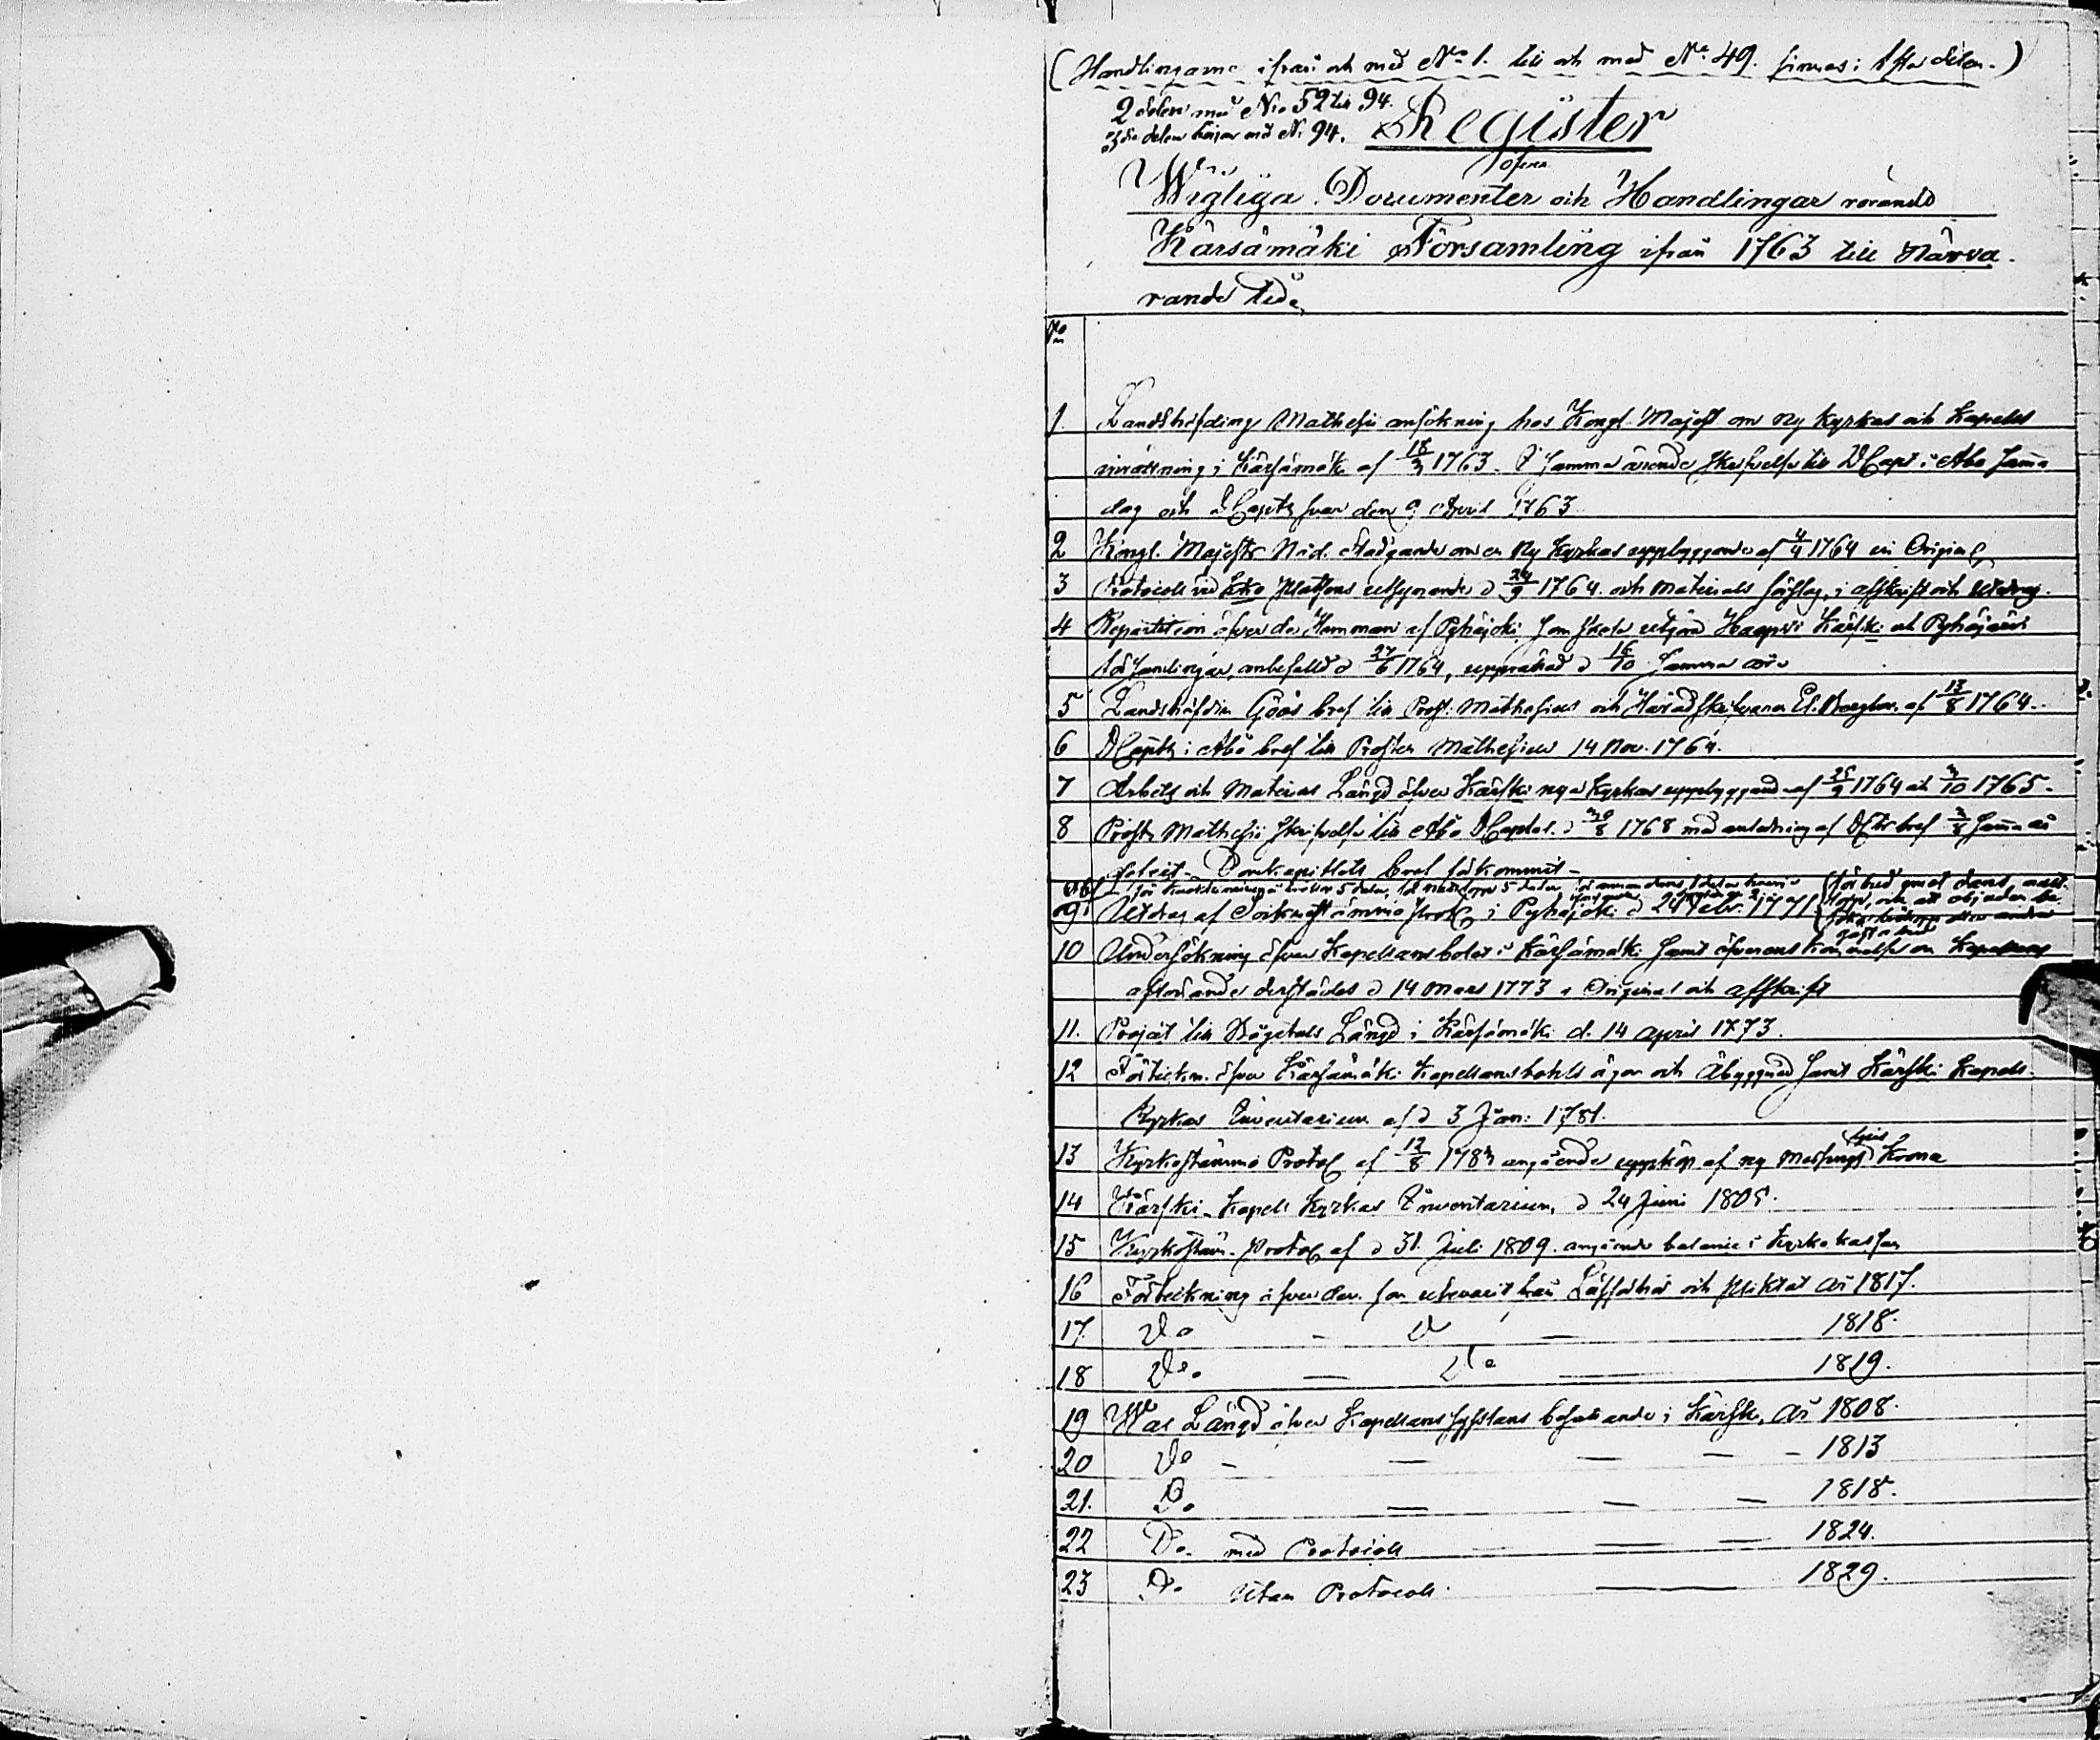 (Handlingarne ifrån och med No 1. till och med No 49. finnas i 1sta delen.)
2 delen med No 52 till 94.
3die delen börjar med No 94.
Register
öfver
Wigtiga Documenter och Handlingar rörande
Kärsämäki Församling ifrån 1763 till närva-
rande tid.
No
1. Landshöfding Mathesii ansökning hos Kongl. Majest om ny Kyrkas och Kapells
inrättning i Kärsämäki af 18/3 1763. I samma ärende skrifvelse till DCapt i Åbo samma
dag och DCapitls svar den 9 April 1763
2 Kongl. Majestts Nåd. Stadgande om en ny Kyrkas uppbyggande af 4/4 1764 in Original
3 Protocoll vid Platsens utsynande d 24/9 1764. och Materials förslag, i afskrift och utdrag.
4 Repartition öfver de Hemman af Pyhäjoki som skola utgöra Haapavesi Kärski och Pyhäjärvi
församlingar, anbefalld d 27/6 1764, upprättad d 16/10 samma år
5 Landshöfdin Göös bref till Prost. Mathesius och Häradskrifvaren El. Berghem af 13/8 1764.
6 DCapitls i Åbo bref till Prosten Mathesius 14 Nov. 1764.
7 Arbets och Materias Längd öfver Kärski nya Kyrkas uppbyggande af 25/9 1764 och 3/10 1765.
8 Prosten Mathesii skrifvelse till Åbo DCapitel d 30/8 1768 med anledning af Dess bref 3/8 samma år
Domkapitlets bref förkommit
9. Utdrag af Sockneståmmo Prot. i Pyhäjoki d 24 Febr. 1771
10 Undersökning öfver Kapellansbolet i Kärsämäki samt öfverenskommelse om Kapellans
aflönande derstädes d 14 Mars 1773 i Original och afskrift
11. Project till Dagstals Längd i Kärsämäki d. 14 April 1773.
12 Förteckn. öfver Kärsämäki Kapellansbohls ägor och Åbyggnad samt Kärski Kapell-
Kyrkas Inventarium af d 3 Jan: 1781.
13 Kyrkostämmo Protoc af 12/8 1783 angående uppköp af ny Messings ljus Krona
14 Kärski Kapell Kyrkas Inventarium, d 24 Juni 1805.
15 Kyrkostäm. Protoc af d 31. Juli 1809. angående balance i Kyrko kassan
16 Förteckning öfver dem som utevarit från Läsförhör och pliktat år 1817.
17. Do - Do - 1818.
18 Do. — Do — 1819.
19 War Längd öfver Kapellans sysslans besökande i Kärski, År 1808.
20 Do - — — — - 1813
21. Do. — — — 1818.
22 Do. med Protocoll — — 1824.
23 Do. utan Protocoll. — 1829.